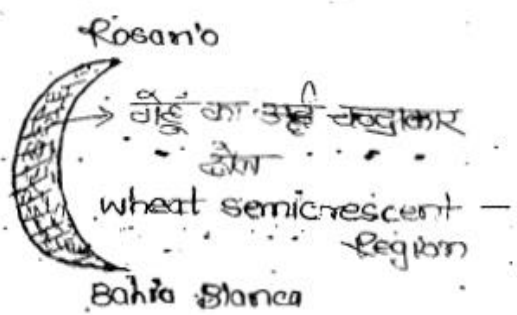 Rosario
गेहूँ का अर्द्ध चन्द्राकार
क्षेत्र
wheat semicrescent -
Region
Bahia Blanca